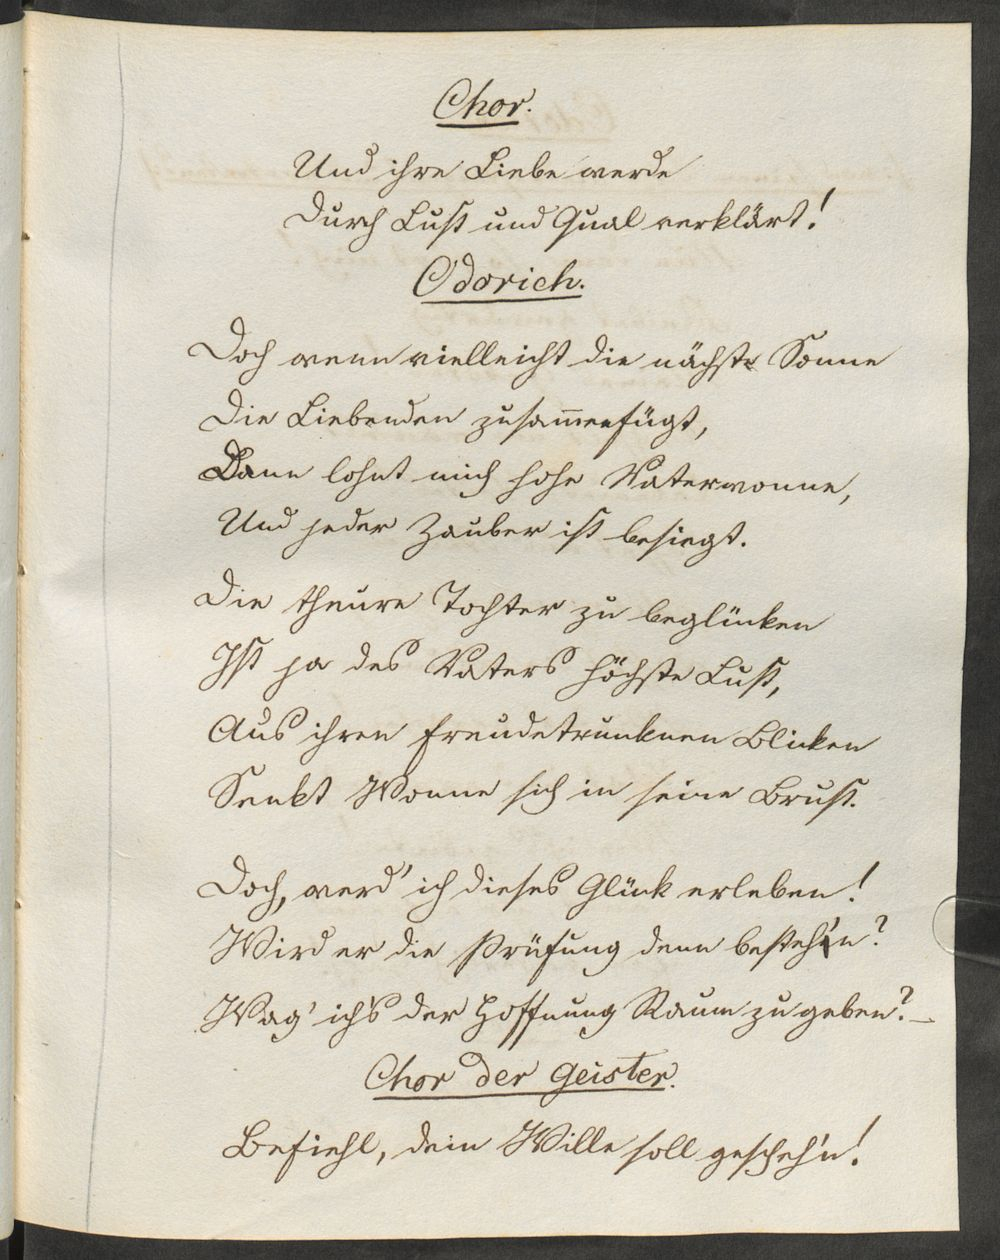 Chor.
Und ihre Liebe werde
Durch Lust und Qual verklärt!
Odorich.
Doch wenn vielleicht die nächste Sonne
Die Liebenden zusam̅enfügt,
Dann lohnt mich hohe Vaterwonne,
Und jeder Zauber ist besiegt.
Die theure Tochter zu beglücken
Ist ja des Vaters höchste Lust,
Aus ihren freudetrunknen Blicken
Senkt Wonne sich in seine Brust.
Doch, werd' ich dieses Glück erleben!
Wird er die Prüfung denn besteh'n?
Wag' ich's der Hoffnung Raum zu geben? –
Chor der Geister.
Befiehl, dein Wille soll gescheh'n!